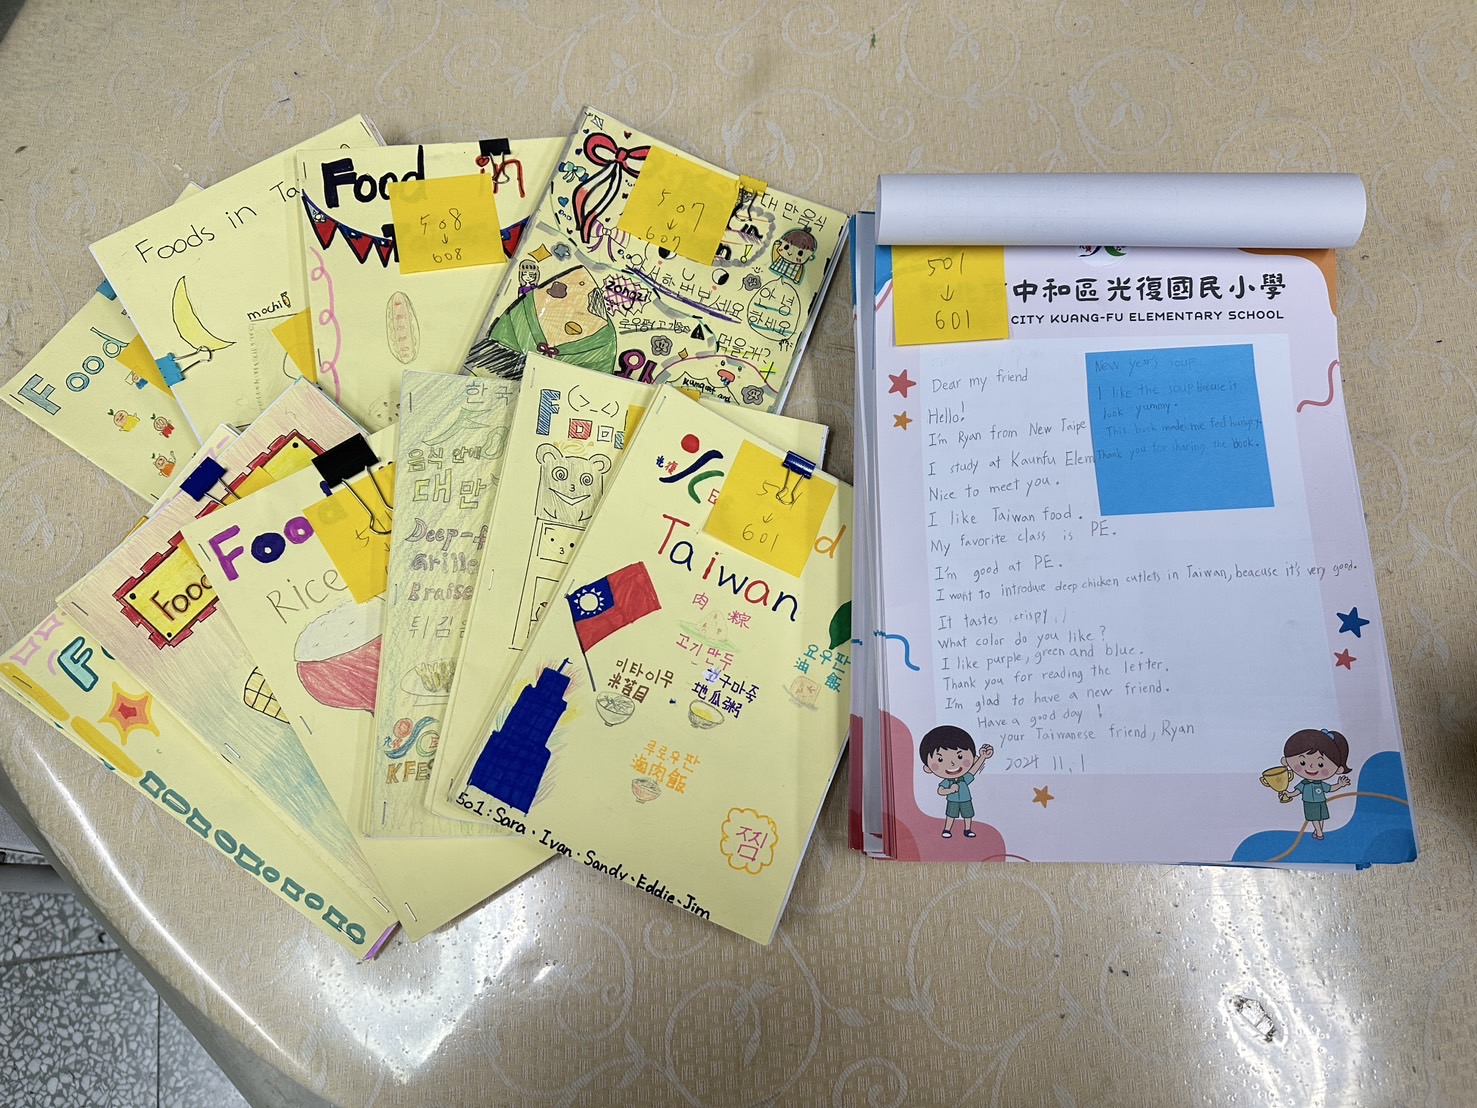 Food
Foods in Ta
mochi
Food in
508
↓
608
507
↓
607
대만음식
zongzi
안녕
하세요
먹을래?
Food
Rice
Food
한국
음식 안내
대만
Deep-f
Grille
Braise
튀김
KFES
501
↓
601
Taiwan
肉粽
고기만두
미타이무
米苔目
고구마죽
地瓜粥
요우판
油飯
루로우판
滷肉飯
찜
501:Sara、Ivan、Sandy、Eddie、Jim
501
↓
601
中和區光復國民小學
CITY KUANG-FU ELEMENTARY SCHOOL
New year's soup
I like the soup because it
look yummy.
This book made me feel hungry.
Thank you for sharing the book.
Dear my friend
Hello!
I'm Ryan from New Taipe
I study at Kaunfu Elem
Nice to meet you.
I like Taiwan food.
My favorite class is PE.
I'm good at PE.
I want to introduce deep chicken cutlets in Taiwan, beacuse it's very good.
It tastes crispy
What color do you like?
I like purple, green and blue.
Thank you for reading the letter.
I'm glad to have a new friend.
Have a good day !
your Taiwanese friend, Ryan
2024 11.1